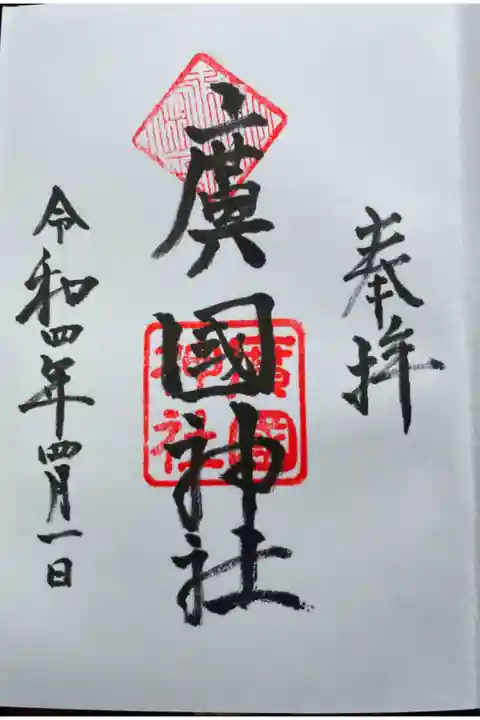 奉拝
廣國神社
廣國
神社
令和四年四月一日